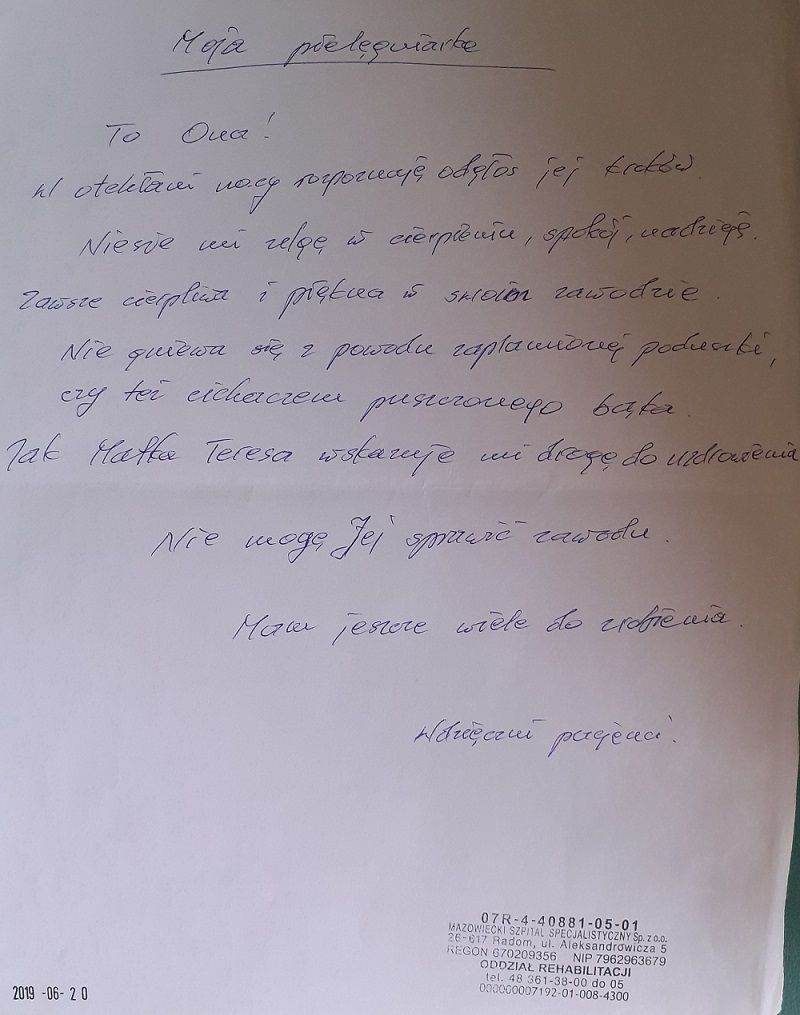 Moja pielęgniarka
To Ona!
W otchłani nocy rozpoznaję odgłos jej kroków.
Niesie mi ulgę w cierpieniu, spokój, nadzieję.
Zawsze cierpliwa i piękna w swoim zawodzie.
Nie gniewa się z powodu zaplamionej poduszki,
czy też cichaczem puszczonego bąka.
Jak Matka Teresa wskazuje mi drogę do uzdrowienia
Nie mogę Jej sprawić zawodu.
Mam jeszcze wiele do zrobienia.
Wdzięczni pacjenci.
07R-4-40881-05-01
MAZOWIECKI SZPITAL SPECJALISTYCZNY Sp. z o.o.
26-617 Radom, ul. Aleksandrowicza 5
REGON 670209356 NIP 7962963679
ODDZIAŁ REHABILITACJI
tel. 48 361-38-00 do 05
000000007192-01-008-4300
2019 -06- 2 0